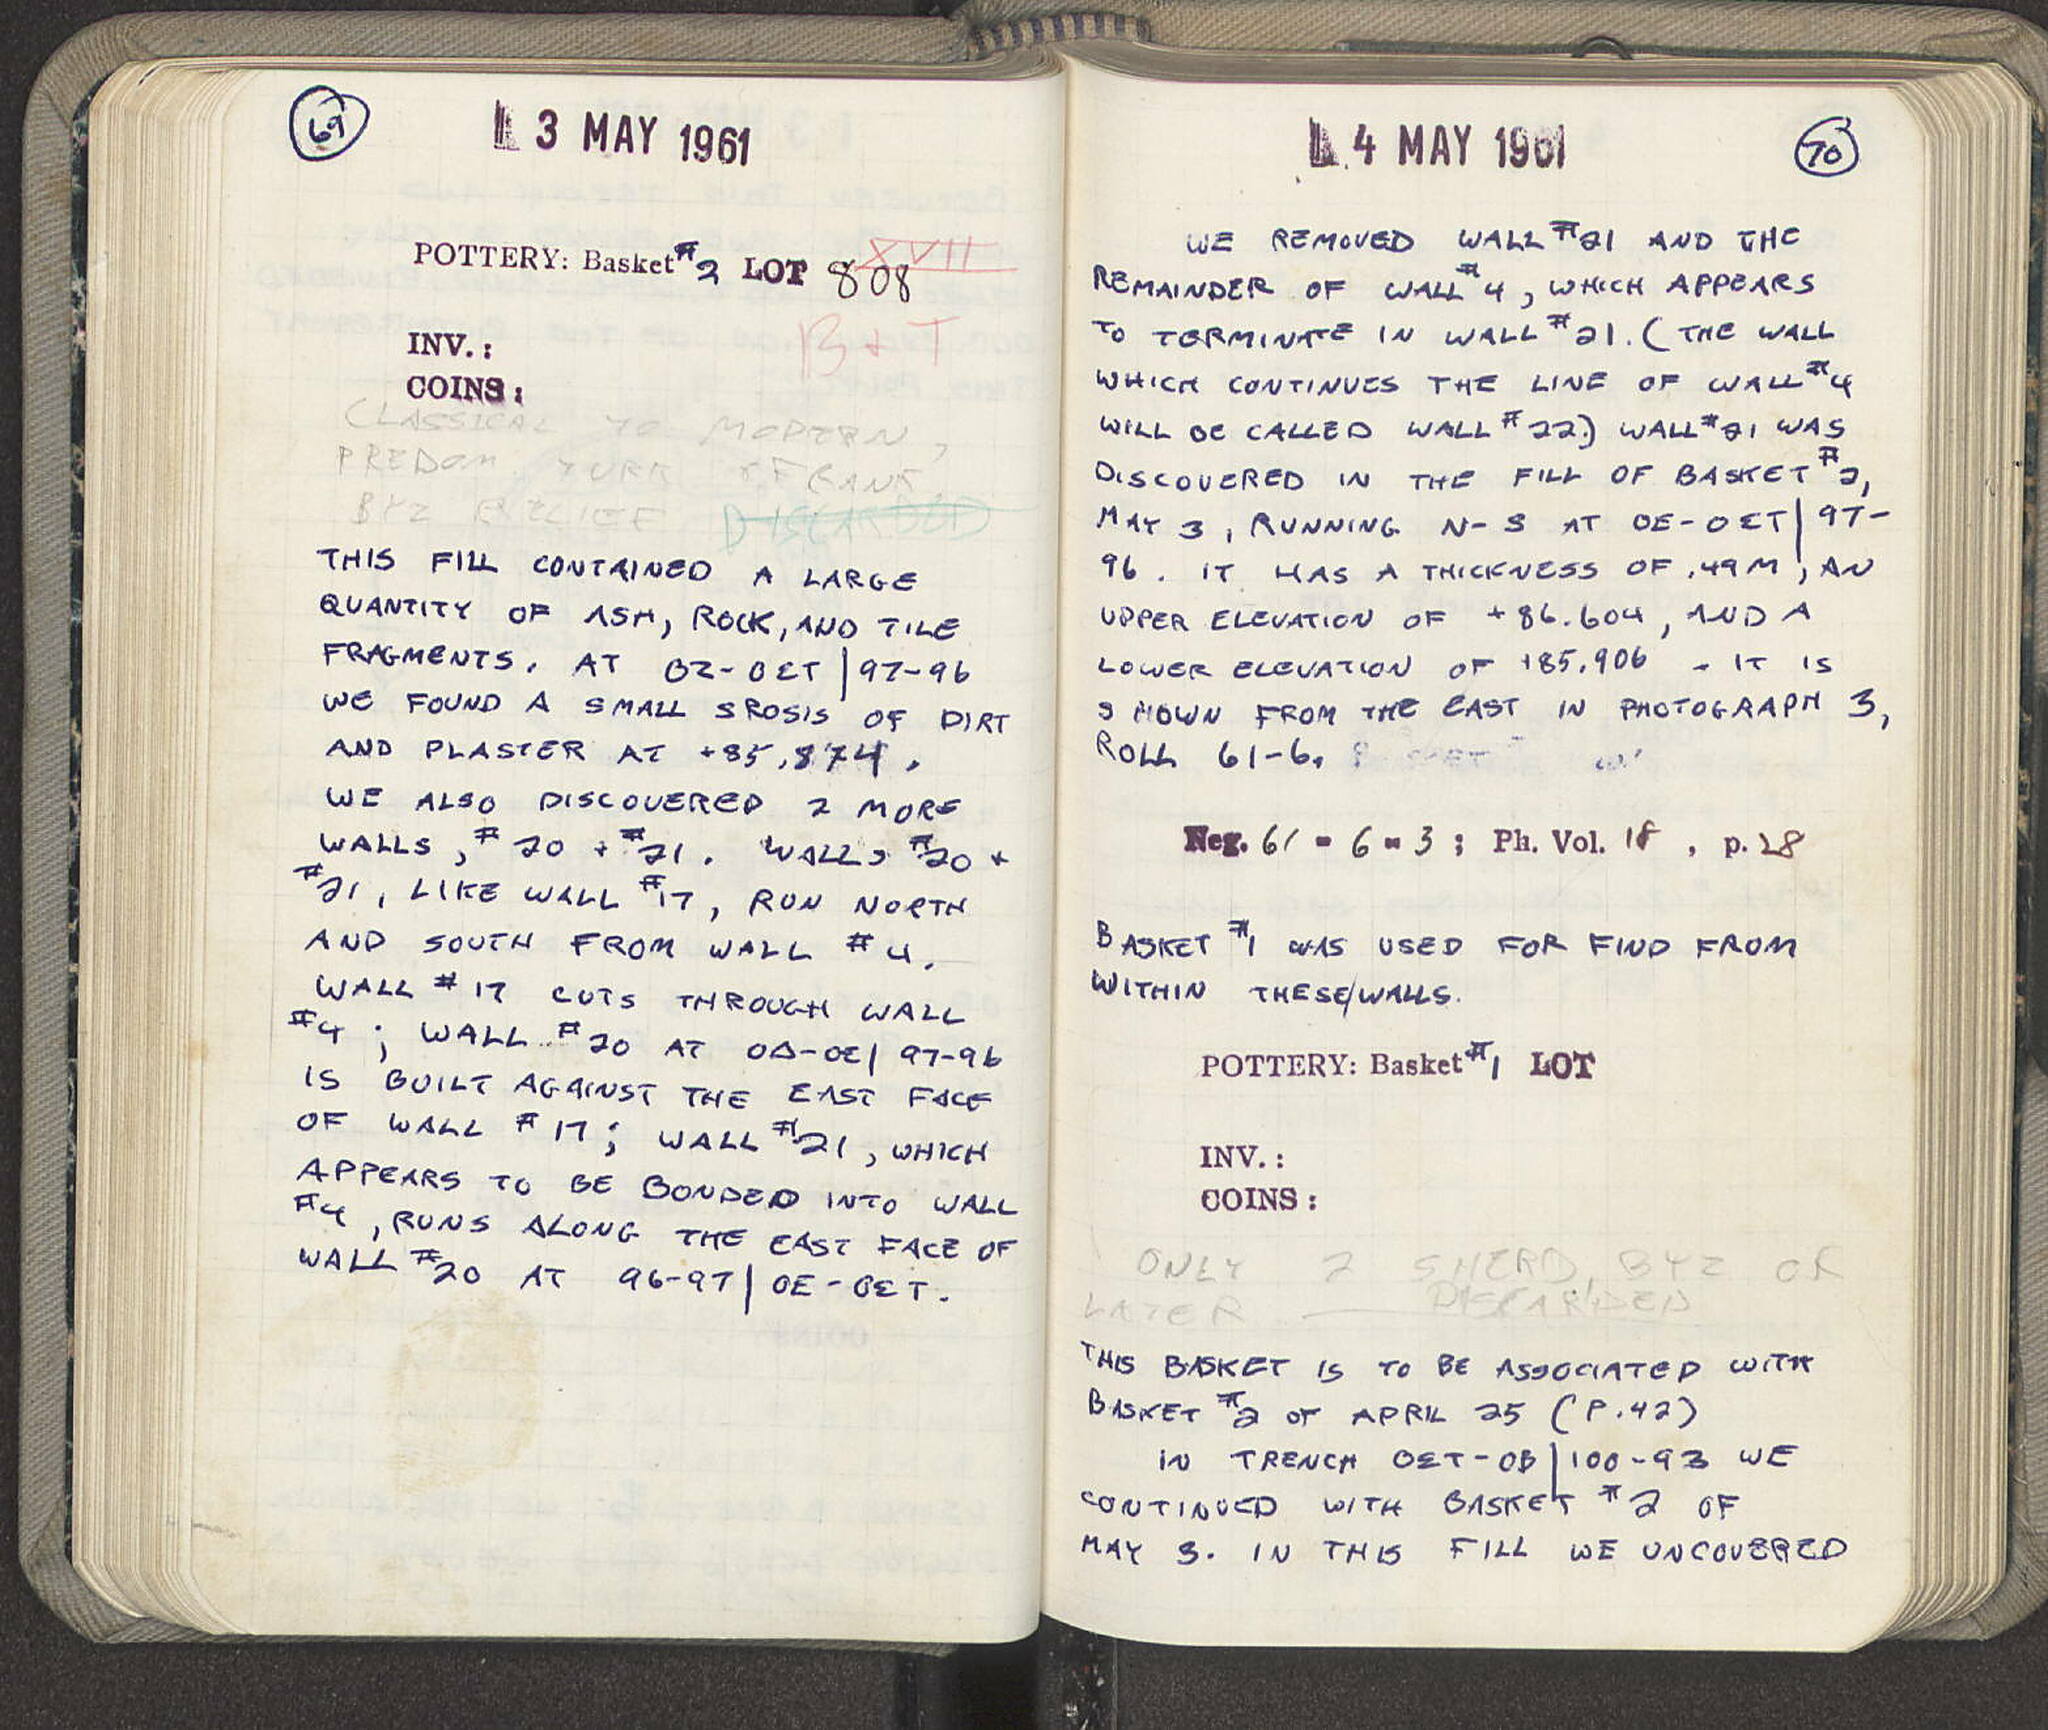 69
3 MAY 1961
XVII
POTTERY: Basket #2 LOT 808
B + T
INV.:
COINS:
CLASSICAL TO MODERN,
PREDOM. TURK + FRANK,
BYZ
DISCARDED
THIS FILL CONTAINED A LARGE
QUANTITY OF ASH, ROCK, AND TILE
FRAGMENTS. AT OZ-OET | 97-96
WE FOUND A SMALL SROSIS OF DIRT
AND PLASTER AT +85.874.
WE ALSO DISCOVERED 2 MORE
WALLS, #20 + #21. WALLS #20 +
#21, LIKE WALL #17, RUN NORTH
AND SOUTH FROM WALL #4.
WALL #17 CUTS THROUGH WALL
#4; WALL #20 AT OΔ-OE | 97-96
IS BUILT AGAINST THE EAST FACE
OF WALL #17; WALL #21, WHICH
APPEARS TO BE BONDED INTO WALL
#4, RUNS ALONG THE EAST FACE OF
WALL #20 AT 96-97 | OE-OΣT.
4 MAY 1961
70
WE REMOVED WALL #21 AND THE
REMAINDER OF WALL #4, WHICH APPEARS
TO TERMINATE IN WALL #21. (THE WALL
WHICH CONTINUES THE LINE OF WALL #4
WILL BE CALLED WALL #22.) WALL #21 WAS
DISCOVERED IN THE FILL OF BASKET #2,
MAY 3, RUNNING N-S AT OE-OΣT | 97-
96. IT HAS A THICKNESS OF .49M, AN
UPPER ELEVATION OF +86.604, AND A
LOWER ELEVATION OF +85.906. IT IS
SHOWN FROM THE EAST IN PHOTOGRAPH 3,
ROLL 61-6.
Neg. 61-6-3; Ph. Vol. 18, p. 28
BASKET #1 WAS USED FOR FIND FROM
WITHIN THESE/WALLS.
POTTERY: Basket #1 LOT
INV.:
COINS:
ONLY 2 SHERD, BYZ OR
LATER DISCARDED
THIS BASKET IS TO BE ASSOCIATED WITH
BASKET #2 OF APRIL 25 (P.42)
IN TRENCH OΣT-OB | 100-93 WE
CONTINUED WITH BASKET #2 OF
MAY 3. IN THIS FILL WE UNCOVERED